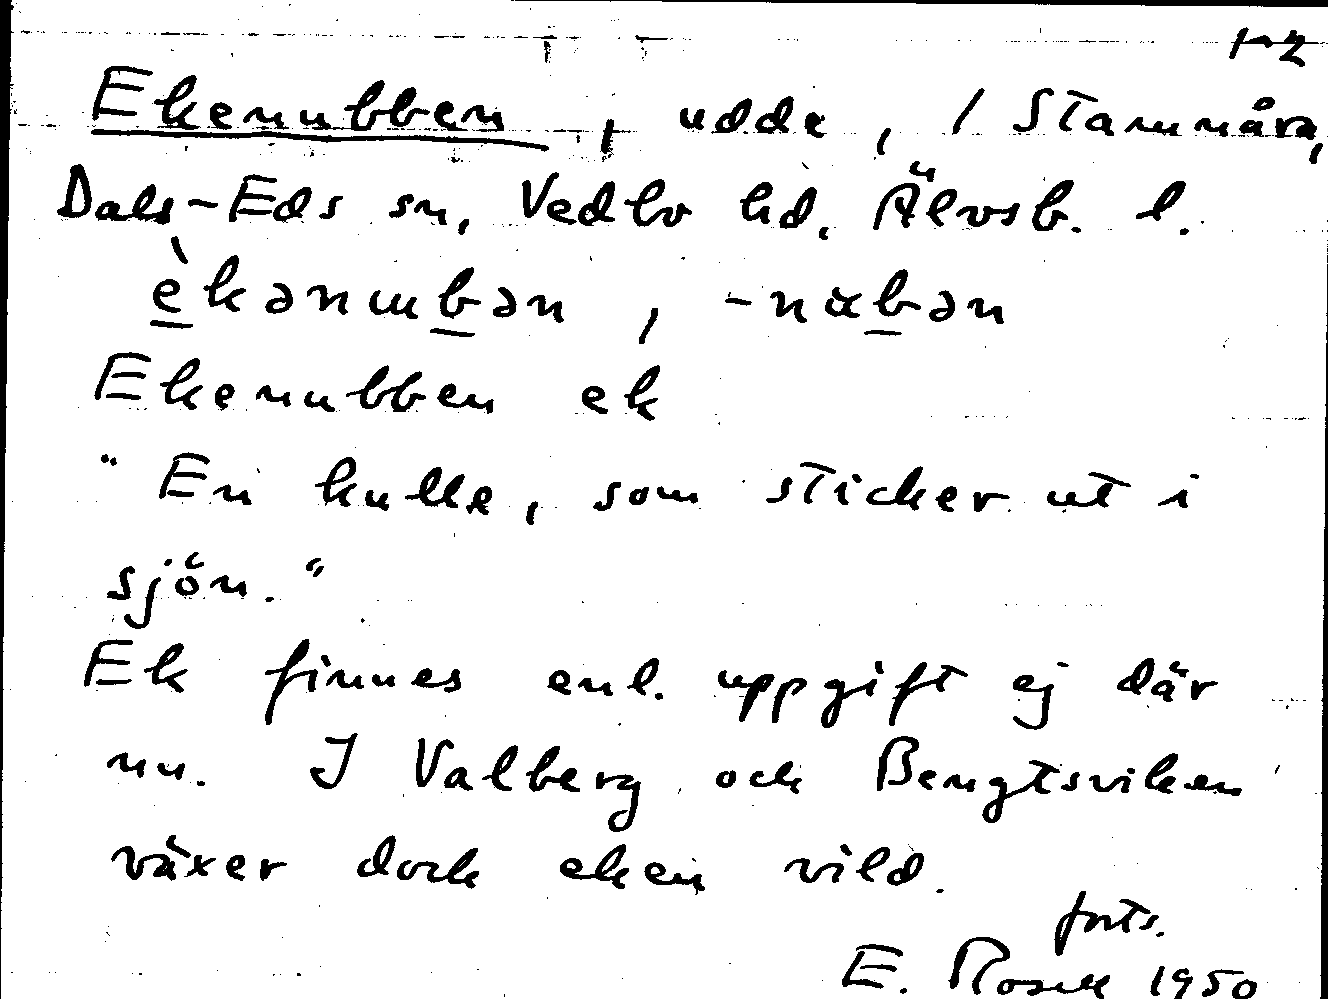 1-2
Ekenubben, udde, / Stammåra,
Dals-Eds sn, Vedbo hd. Älvsb. l.
èkənɯbən, -nɑbən
Ekenubben ek
"En kulle, som sticker ut i
sjön."
Ek finnes enl. uppgift ej där
nu. I Valberg och Bengtsviken
växer dock eken vild.
forts.
E. Rosell 1950